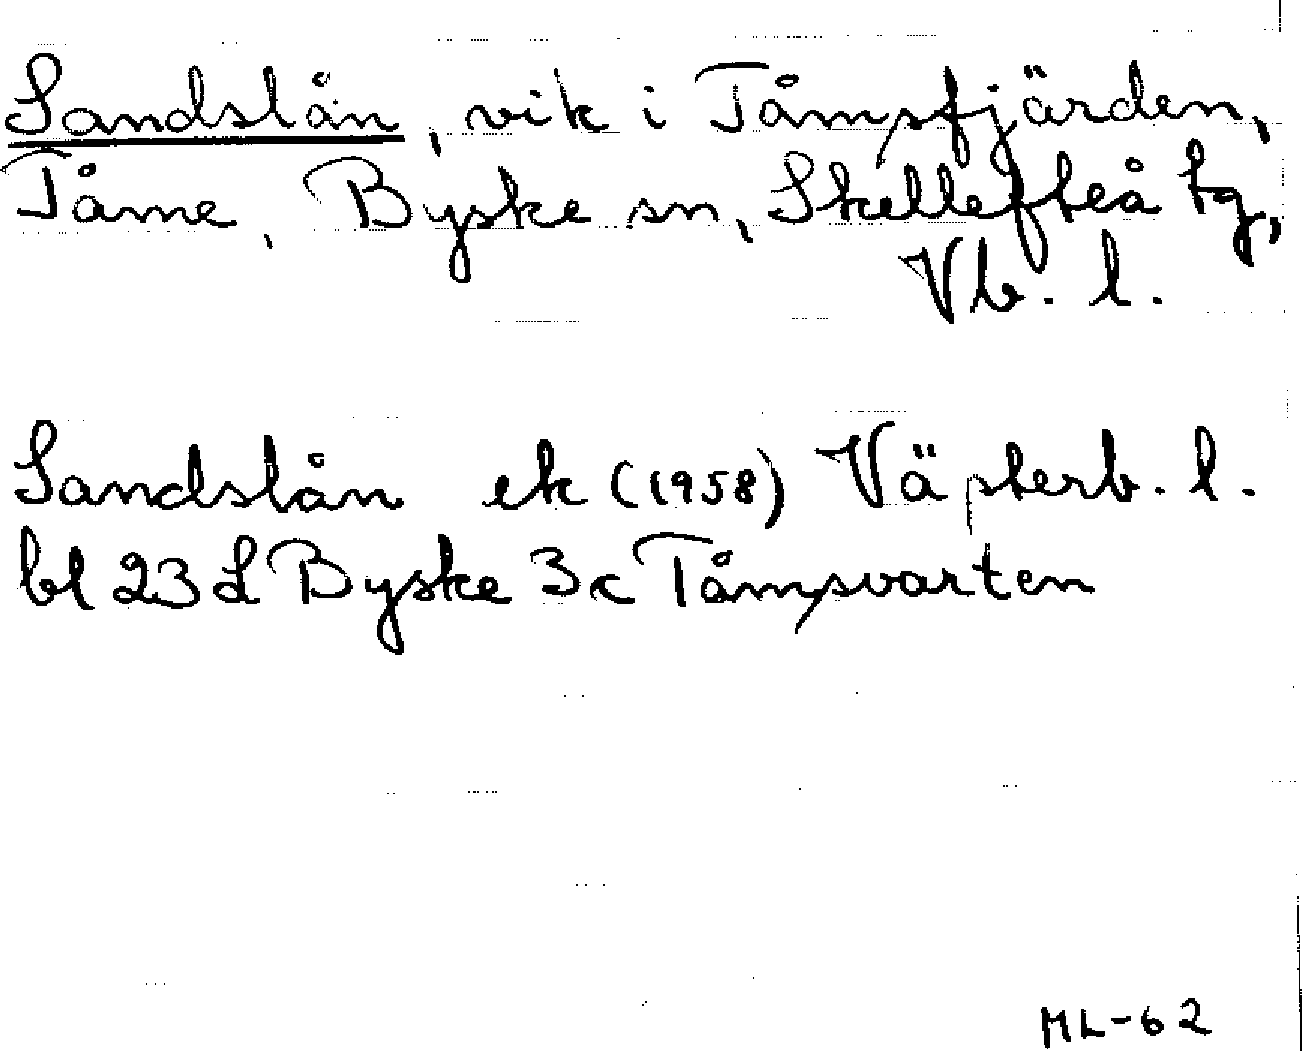 Sandslån, vik i Tåmsfjärden,
Tåme, Byske sn, Skellefteå tg,
Vb. l.
Sandslån ek (1958) Västerb. l.
bl 23 L Byske 3c Tåmsvarten
ML-62